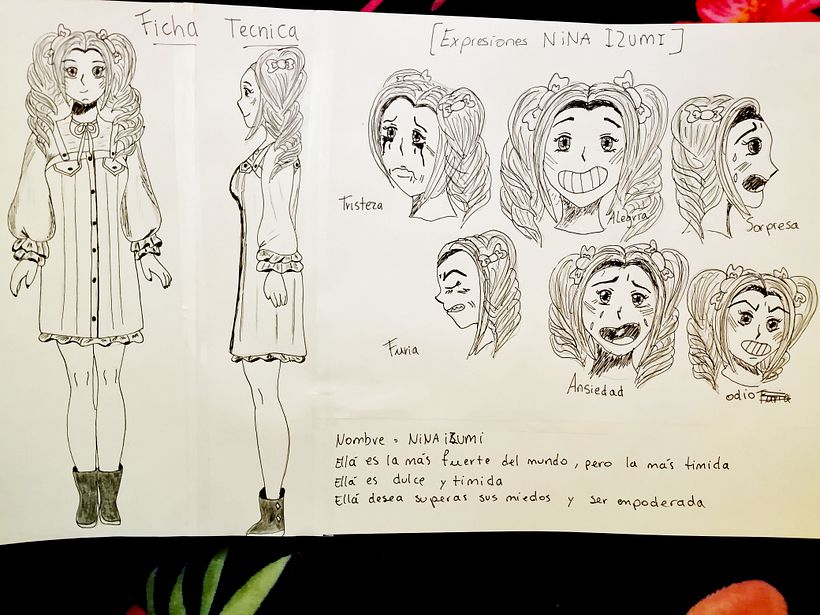 Ficha Tecnica
[Expresiones NiNA IZUMI]
Tristeza
Alegria
Sorpresa
Furia
Ansiedad
odio Furia
Nombre = NiNA iZUMi
Ellá es la más fuerte del mundo, pero la más timida
Ellá es dulce y timida
Ellá desea superas sus miedos y ser empoderada